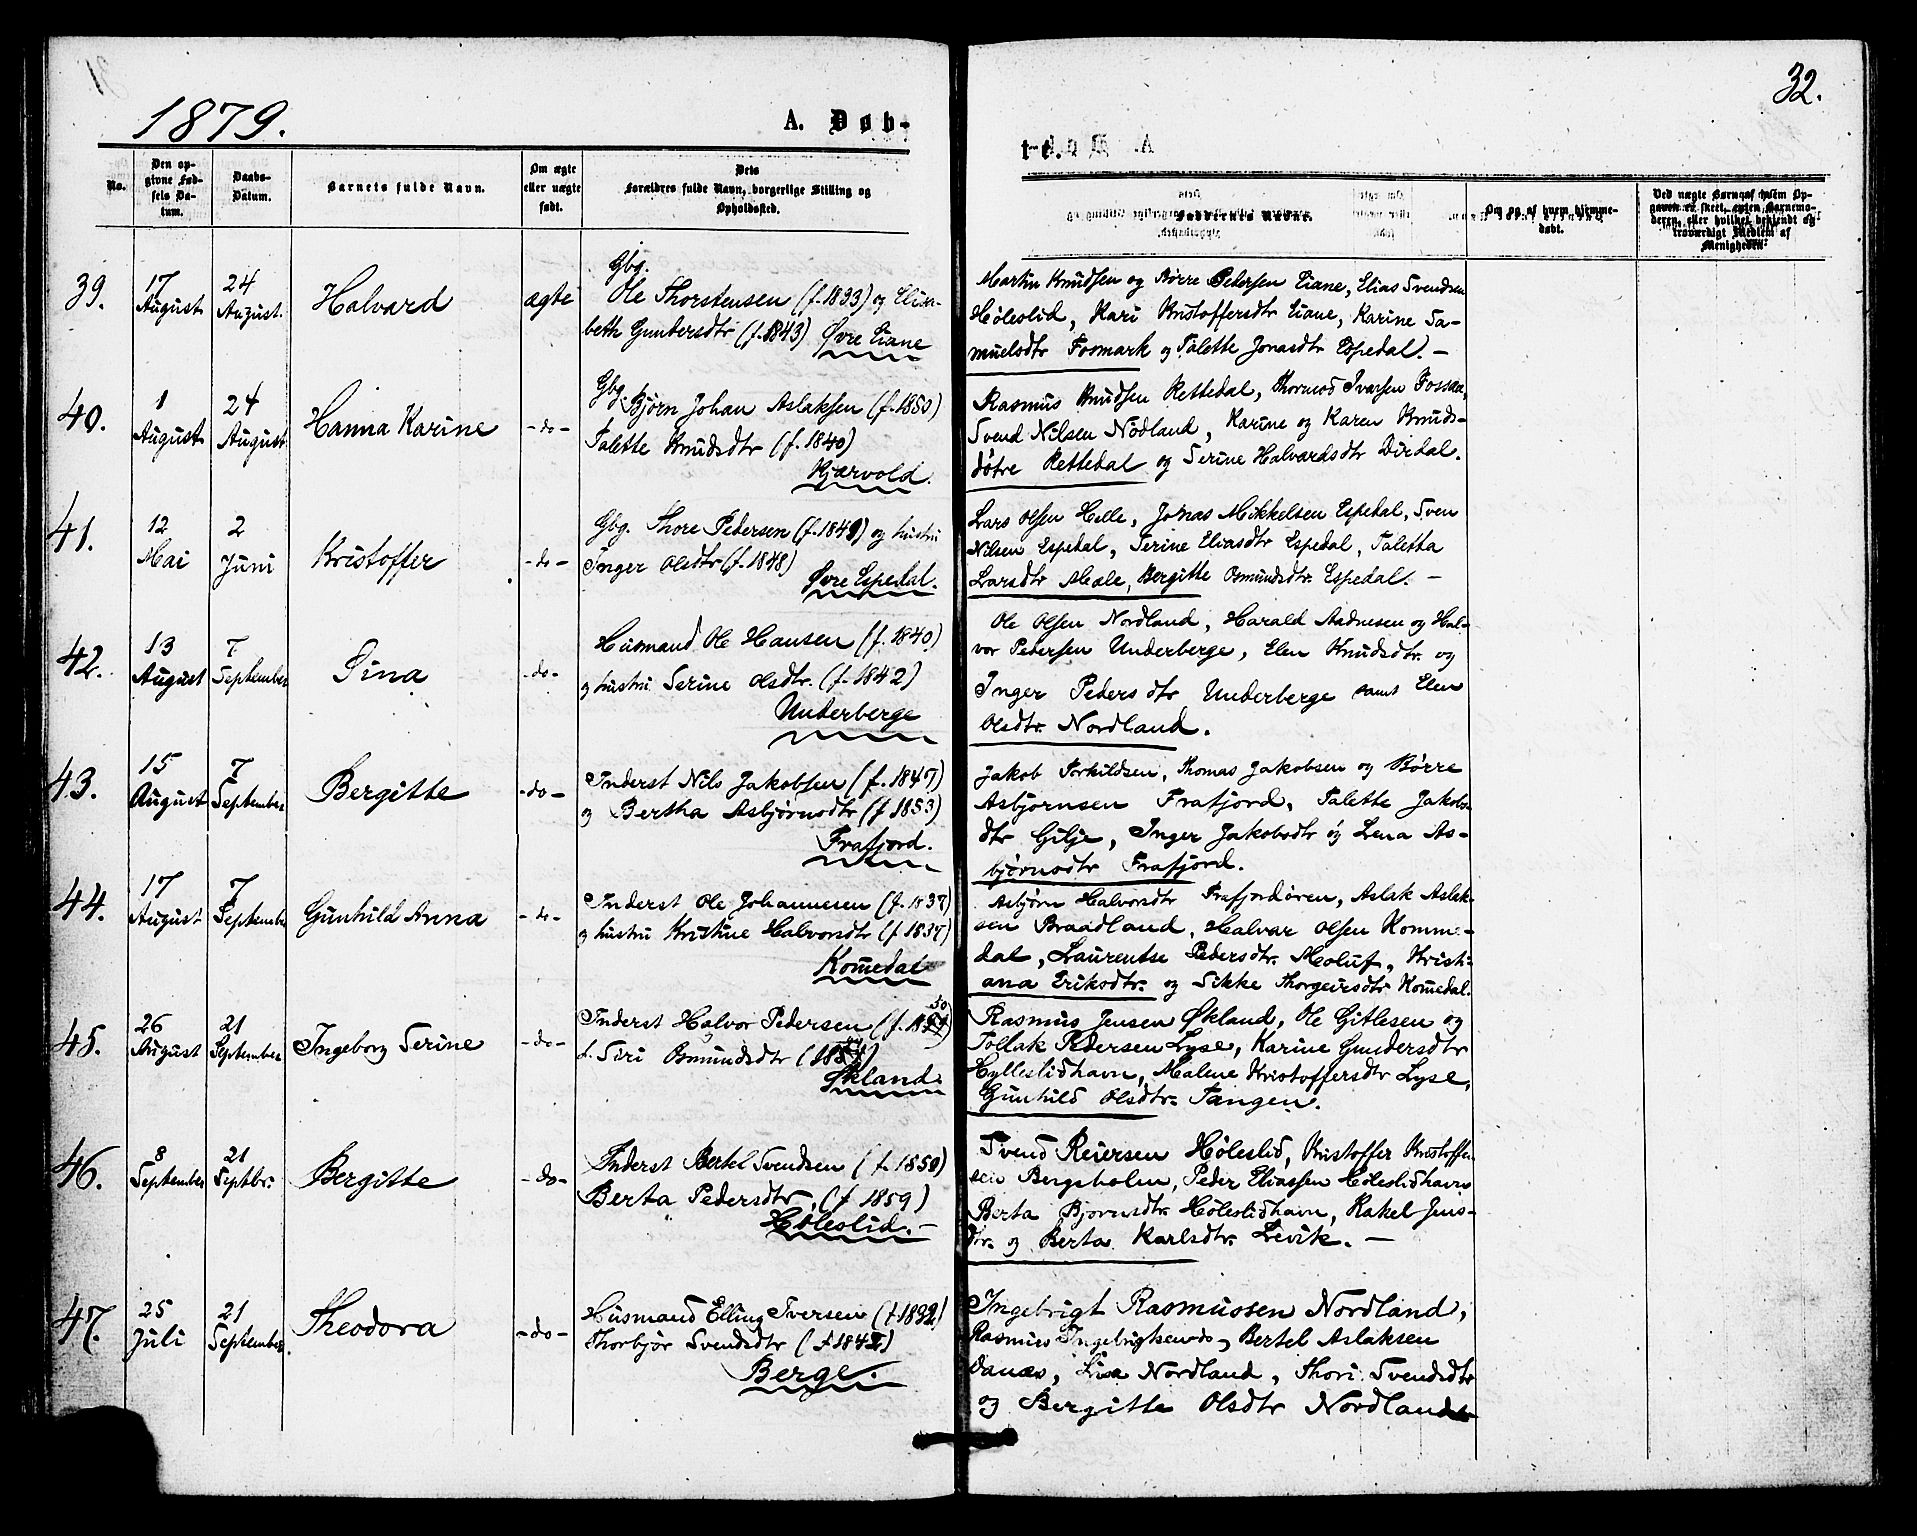 1879.
A. Døb-
No.
Den op-
givne Fød-
sels Da-
tum.
Daabs-
Datum.
Barnets fulde Navn.
Om ægte
eller uægte
født.
Dets
Forældres fulde Navn, borgerlige Stilling og
Opholdssted.
39.
17
August
24
August.
Halvard
ægte
Gbg.
Ole Thorstensen (f. 1833) og Elisa-
beth Gundersdtr (f. 1843) Øvre Eiane
40.
1
August
24
August
Hanna Karine
- do -
Gbg. Bjørn Johan Aslaksen (f. 1850)
Talette Knudsdtr (f. 1840)
Kjærvold.
41.
12
Mai
2
Juni
Kristoffer
- do -
Gbg. Thore Pedersen (f. 1849) og hustru
Inger Olsdtr (f. 1848)
Øvre Espedal.
42.
13
August
7
September
Sina
- do -
Husmand Ole Hansen (f. 1840)
og hustru Serine Olsdtr. (f. 1842)
Underberge
43.
15
August
7
September
Bergitte
- do -
Inderst Nils Jakobsen (f. 1847)
og Bertha Asbjørnsdtr (f 1853)
Frafjord.
44.
17
August
7
September
Gunhild Anna
- do -
Inderst Ole Johannesen (f. 1837)
og hustru Kristine Halvorsdtr (f. 1837)
Komedal
45.
26
August
21
September
Ingeborg Serine
- do -
Inderst Halvor Pedersen (f. 18 50)
Siri Osmundsdtr
Økland.
46.
8
September
21
Septbr.
Bergitte
- do -
Inderst Bertel Svendsen (f. 1850)
Berta Pedersdtr, (f 1859)
Høleslid. -
47.
25
Juli
21
September.
Theodora
- do -
Husmand Elling Iversen (f. 1832)
Thorbjør Svendsdtr (f 1842)
Berge.
32.
te.
Faddernes Navne.
Om og af hvem hjemme-
døbt.
Ved uægte Børn af hvem Op-
gaven er skeet, enten Barnemo-
deren, eller hvilket bekjendt og
troværdigt Medlem af
Menigheden.
Martin Knudsen og Børre Pedersen Eiane, Elias Svendsen
Høleslid, Kari Kristoffersdtr Eiane, Karine Sa-
muelsdtr Fosmark og Talette Jonasdtr Espedal. -
Rasmus Knudsen Rettedal, Thormod Ivarsen Fossaa,
Svend Nilsen Nødland, Karine og Karen Knuds-
døtre Rettedal og Serine Halvardsdtr Dirdal.
Lars Olsen Helle, Jonas Mikkelsen Espedal, Sven
Nilsen Espedal, Serine Eliasdtr Espedal, Taletta
Larsdtr Mæle, Bergitte Osmundsdtr. Espedal. -
Ole Olsen Nordland, Harald Aadnesen og Hal-
vor Pedersen Underberge, Elen Knudsdtr. og
Inger Pedersdtr Underberge samt Elen
Olsdtr. Nordland.
Jakob Torkildsen, Thomas Jakobsen og Børre
Asbjørnsen Frafjord, Talette Jakobs-
dtr Gilje, Inger Jakobsdtr og Lena As-
bjørnsdtr Frafjord.
Asbjørn Halvorsdtr Frafjordøren, Aslak Aslak-
sen Braadland, Halvar Olsen Komme-
dal, Laurentse Pedersdtr. Moluf, Kristi-
ana Eriksdtr. og Sikke Thorgeirsdtr Komedal.
Rasmus Jensen Økland, Ole Gitlesen og
Tollak Pedersen Lyse, Karine Gundersdtr
Hylleslidhavn, Malene Kristoffersdtr Lyse,
Gunhild Olsdtr. Tangen.
Svend Reiersen Høleslid, Kristoffer Kristoffer-
sen Bergsholm, Peder Eliassen Høleslidhavn
Berta Bjørnsdtr. Høleslidhavn, Rakel Jens-
dtr. og Berta Karlsdtr. Levik. -
Ingebrigt Rasmussen Nordland,
Rasmus Ingebrigtsen do, Bertel Aslaksen
Lisa Nordland, Thori Svendsdtr
og Bergitte Olsdtr Nordland